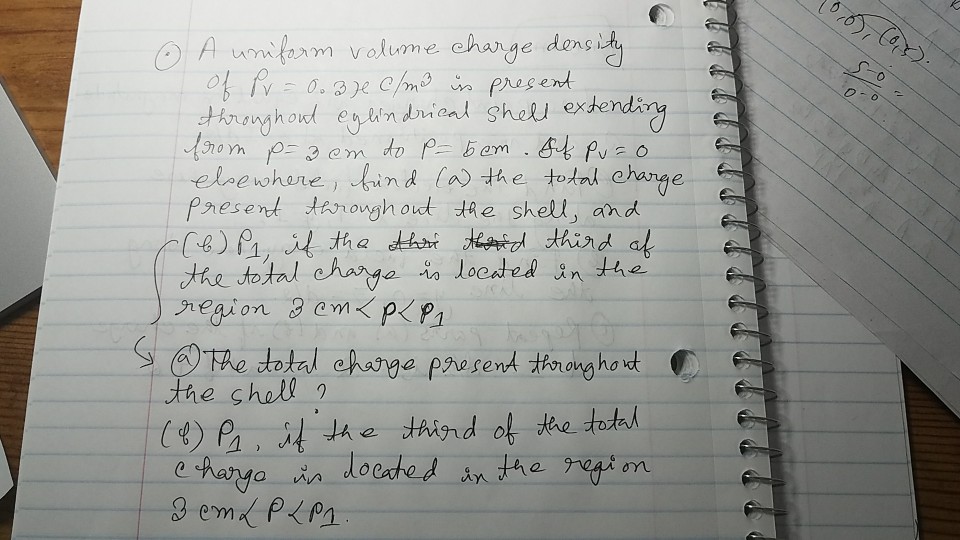 A uniform volume charge density
of ρv = 0.3 c/m³ is present
throughout cylindrical shell extending
from ρ= 3 cm to ρ= 5cm. If ρv = 0
elsewhere, find (a) the total charge
present throughout the shell, and
(b) ρ1, if the third of
the total charge is located in the
region 3 cm < ρ < ρ1
(a) The total charge present throughout
the shell ?
(b) ρ1, if the third of the total
charge is located in the region
3 cm < ρ < ρ1.
(0,0), (0,5).
5-0
0-0 =